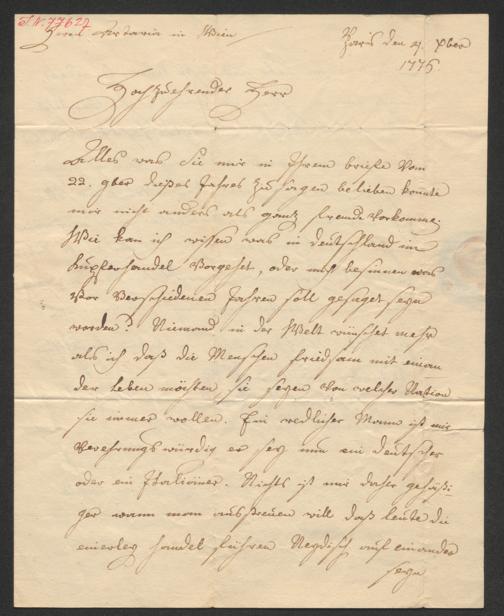 I.N. 77627
Herrn Artaria in Wien
Paris den 9. Xber
1775.
Hochzuehrender Herr
Alles was Sie mir in Ihrem briefe vom
22. 9ber dieses Jahres zu sagen belieben konnte
mir nicht anders als gantz fremde vorkommen
Wie kan ich wissen was in deutschland im
Kupferhandel vorgehet, oder mich besinnen was
vor verschiedenen Jahren soll gesaget seyn
worden? Niemand in der Welt wünschet mehr
als ich daß die Menschen friedsam mit einan
der leben möchten sie seyen von welcher Nation
sie immer wollen. Ein redlicher Mann ist mir
verehrungswürdig er sey nun ein deutscher
oder ein Italiäner. Nichts ist mir daher gehäßi-
ger wann man ausstreuen will daß leute die
einerley handel führen Neydisch auf einander
seyn